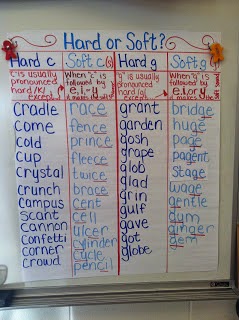 Hard or Soft?
Hard c
C is usually
pronounced
hard /k/
except
Cradle
Come
cold
cup
crystal
crunch
campus
scant
cannon
confetti
corner
crowd
Soft c (s)
When "c" is
followed by
e, i, -y
it makes
race
fence
prince
fleece
twice
brace
cent
cell
ulcer
cylinder
cycle
pencil
Hard g
"g" is usually
pronounced
hard /g/
except
grant
garden
gosh
grape
glob
glad
grin
gulf
gave
got
globe
Soft g
When "g" is
followed by
e, i or y
bridge
huge
page
pagent
stage
wage
gentle
gym
ginger
gem